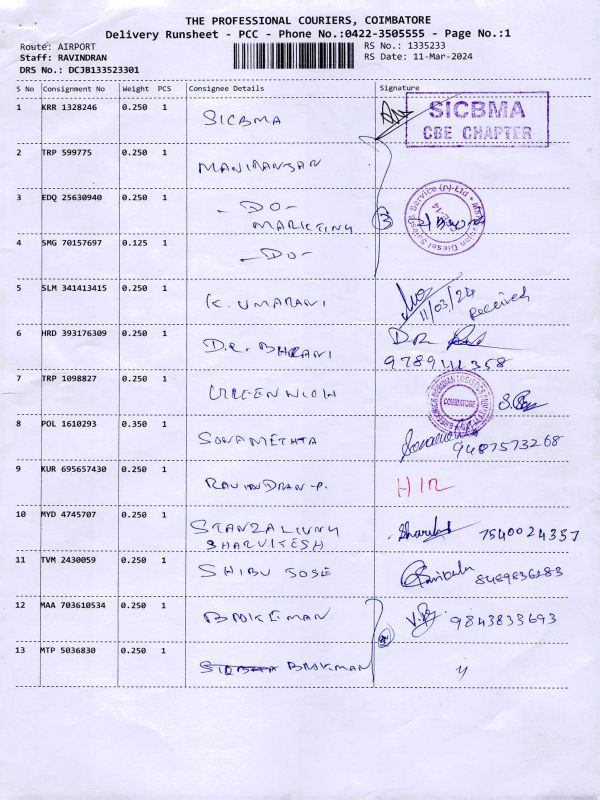 THE PROFESSIONAL COURIERS, COIMBATORE
Delivery Runsheet - PCC - Phone No.:0422-3505555 - Page No.:1
Route: AIRPORT
Staff: RAVINDRAN
DRS No.: DCJB133523301
RS No.: 1335233
RS Date: 11-Mar-2024
S No Consignment No Weight PCS Consignee Details Signature
1 KRR 1328246 0.250 1 SICBMA
SICBMA
CBE CHAPTER
2 TRP 599775 0.250 1 MANIRANJAN
3 EDQ 25630940 0.250 1 - DO -
MARKETING
3
4 SMG 70157697 0.125 1 - DO -
5 SLM 341413415 0.250 1 K. UMARANI
11/03/24
Received
6 HRD 393176309 0.250 1 D.R. BHRANI DR
9789411358
7 TRP 1098827 0.250 1 GREENWICH
COIMBATORE
8 POL 1610293 0.350 1 SONAMETHTA
9487573268
9 KUR 695657430 0.250 1 RAVINDRAN-P.
10 MYD 4745707 0.250 1 STANZALIVING
SHARVIKESH
7540024357
11 TVM 2430059 0.250 1 SHIBU JOSE
8489836283
12 MAA 703610534 0.250 1
9843833693
13 MTP 5036830 0.250 1